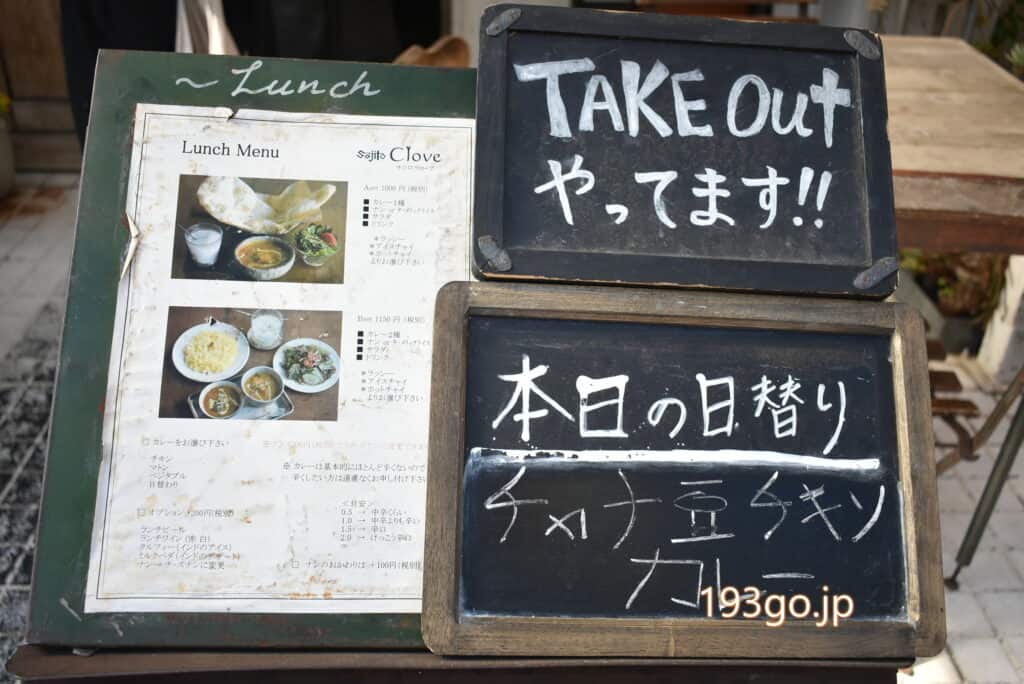 ~Lunch
Lunch Menu
Sajilo Clove
Aset 1000円(税別)
■カレー1種
■サラダ
■ドリンク
※ラッシー
※アイスチャイ
※ホットチャイ
よりお選び下さい
Bset 1150円(税別)
■カレー2種
■サラダ
■ドリンク
※ラッシー
※アイスチャイ
※ホットチャイ
よりお選び下さい
□カレーをお選び下さい
チキン
マトン
ベジタブル
日替わり
※カレーは基本的にほとんど辛くないので
辛くしたい方は遠慮なくお申し付け下さ
<目安>
0.5 → 中辛くらい
1.0 → 中辛よりも辛い
1.5 → 辛口
2.0 → けっこう辛口
□オプション+200円(税別)
ランチビール
ランチワイン(赤 白)
クルフィー(インドのアイス)
ナン→チーズナンに変更
□ナンのおかわりは+100円(税別)
TAKE Out
やってます!!
本日の日替り
チャナ豆チキン
カレー
193go.jp